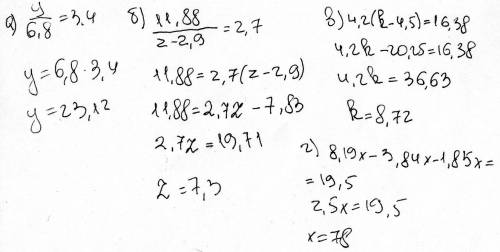 а) y/6,8 = 3.4
y = 6,8 · 3,4
y = 23,12
б) 11,88/(z-2,9) = 2,7
11,88 = 2,7(z-2,9)
11,88 = 2,7z - 7,83
2,7z = 19,71
z = 7,3
в) 4,2(k-4,5) = 16,38
4,2k - 20,25 = 16,38
4,2k = 36,63
k = 8,72
г) 8,19x - 3,84x - 1,85x =
= 19,5
2,5x = 19,5
x = 78